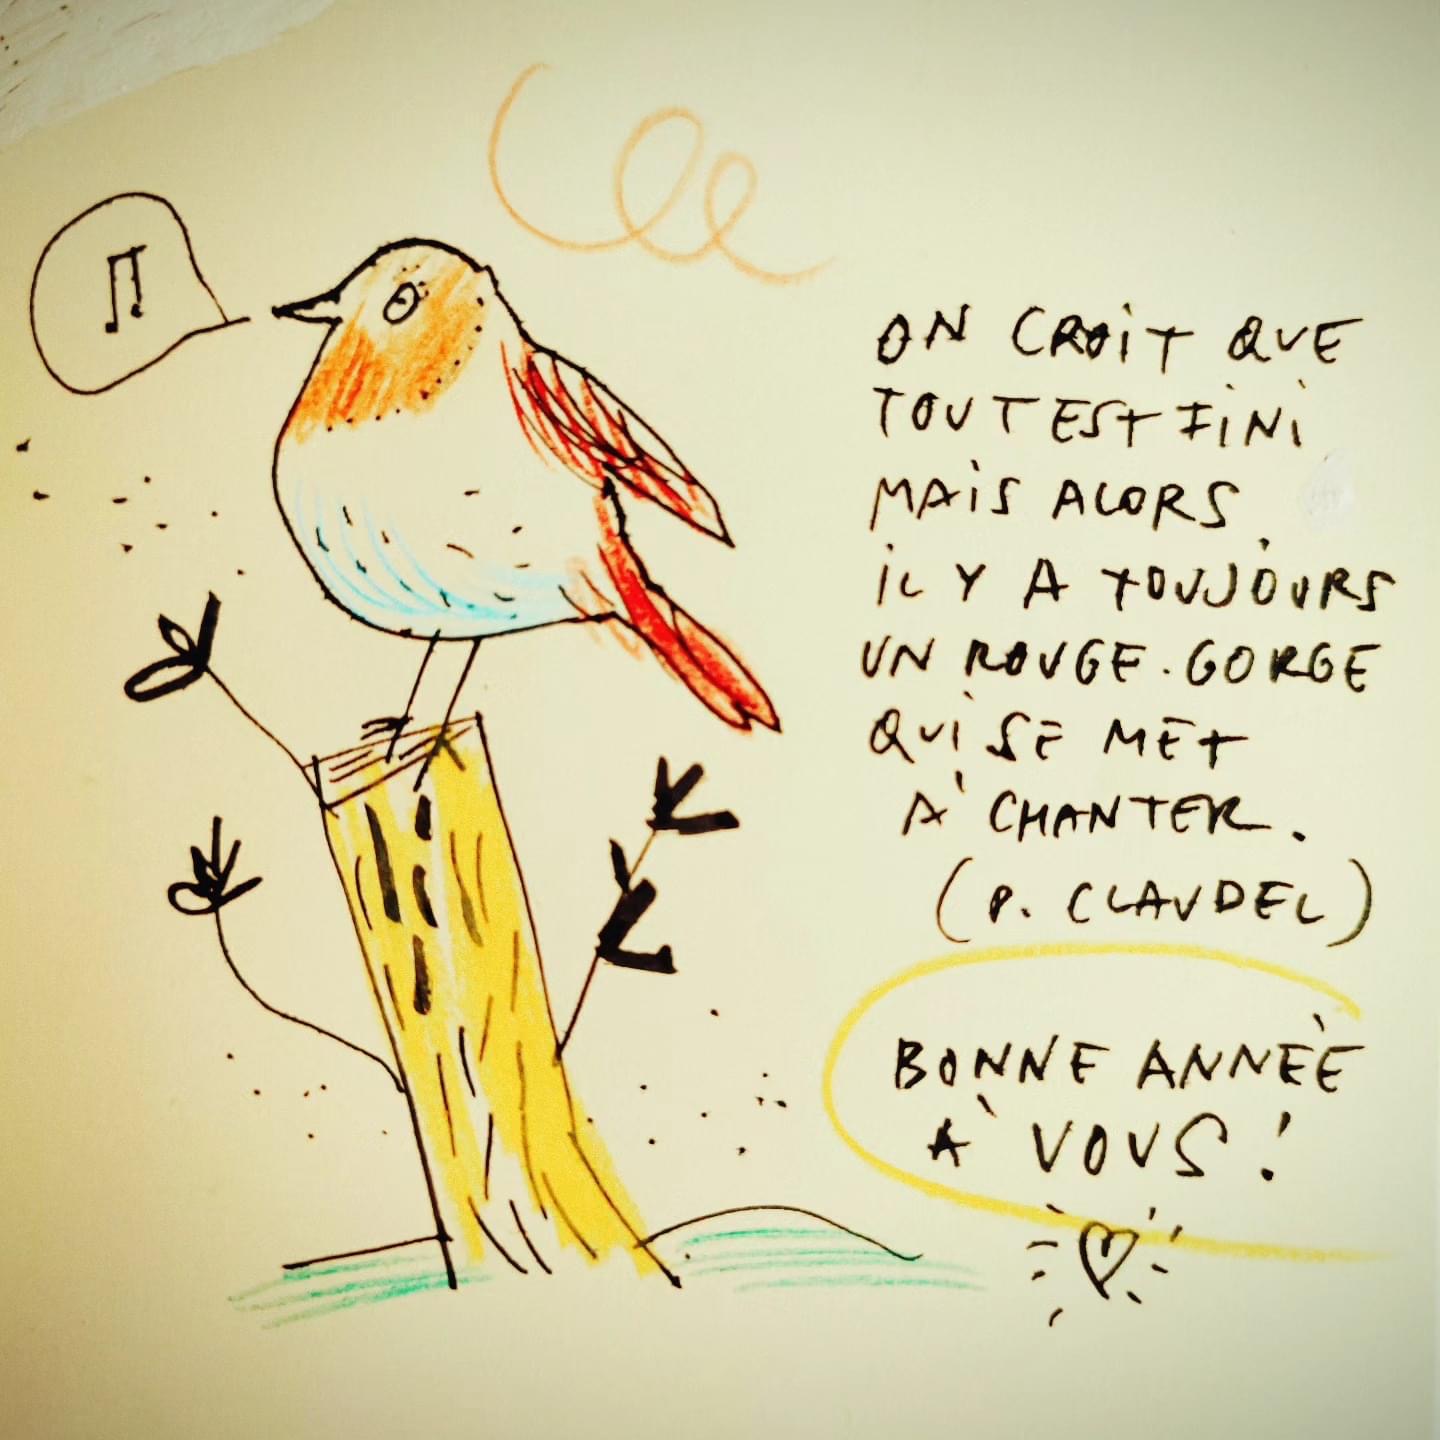 ON CROIT QUE
TOUT EST FINI
MAIS ALORS
IL Y A TOUJOURS
UN ROUGE-GORGE
QUI SE MET
À CHANTER.
(P. CLAUDEL)
BONNE ANNÉE
À VOUS !